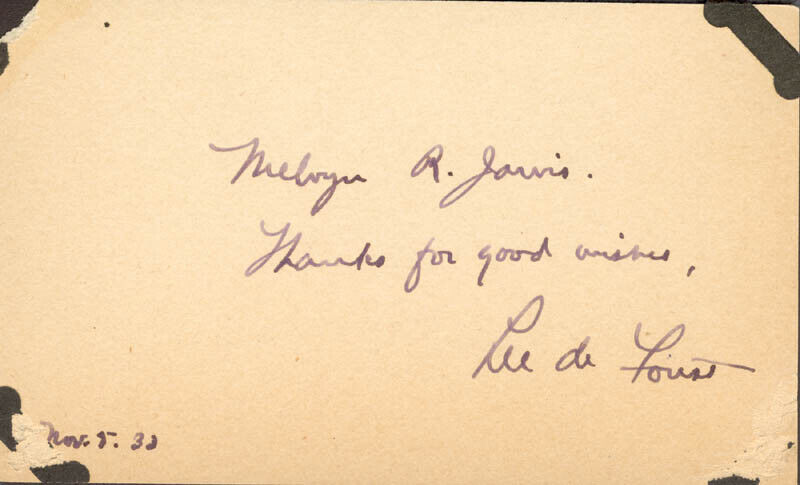 Melvyn R. Jarvis.
Thanks for good wishes,
Lee de Forest
Nov. 5. 32